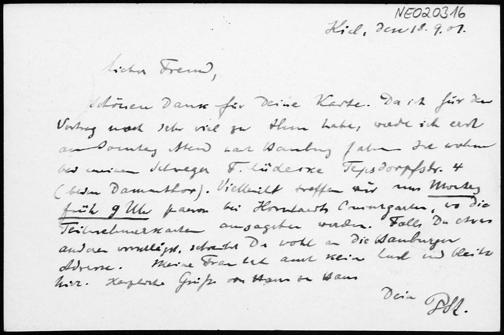 NE020316
Kiel, den 18.9.01.
Lieber Freund,
schönen Dank für Deine Karte. Da ich für den
Vortrag noch sehr viel zu thun habe, werde ich erst
am Sonntag Abend nach Hamburg fahren. Ich wohne
bei meinem Schwager F. Lüderke 4
(beim Dammthor). Vielleicht treffen wir uns Montag
früh 9 Uhr bei Hornhardts Concertgarten, wo die
Teilnehmerkarten ausgegeben werden. Falls Du etwas
anderes vorschlägst, schreibst Du wohl an die Hamburger
Adresse. Meine Frau hat keine Lust und bleibt
hier. Herzliche Grüße von Haus zu Haus
Dein